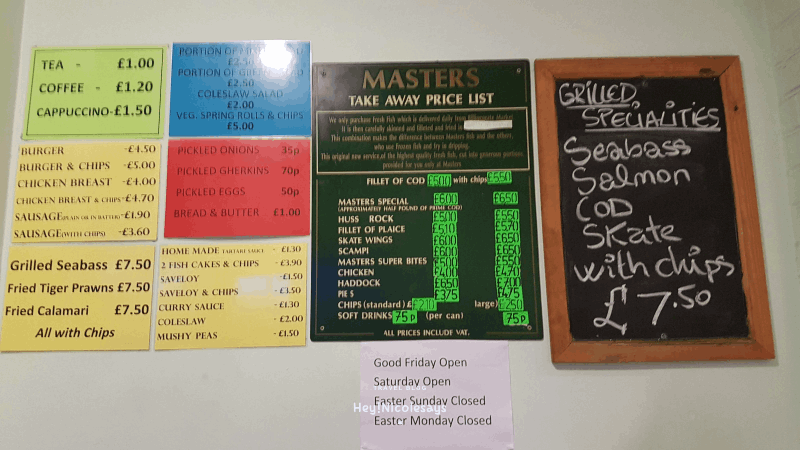 TEA - £1.00
COFFEE - £1.20
CAPPUCCINO-£1.50
PORTION OF
£2.50
PORTION OF
£2.50
COLESLAW SALAD
£2.00
VEG. SPRING ROLLS & CHIPS
£5.00
BURGER -£4.50
BURGER & CHIPS -£5.00
CHICKEN BREAST -£4.00
CHICKEN BREAST & CHIPS-£4.70
SAUSAGE(PLAIN OR IN BATTER)-£1.90
SAUSAGE(WITH CHIPS) -£3.60
PICKLED ONIONS 35p
PICKLED GHERKINS 70p
PICKLED EGGS 50p
BREAD & BUTTER £1.00
Grilled Seabass £7.50
Fried Tiger Prawns £7.50
Fried Calamari £7.50
All with Chips
HOME MADE TARTARE SAUCE - £1.30
2 FISH CAKES & CHIPS -£3.90
SAVELOY -£1.50
SAVELOY & CHIPS -£3.50
CURRY SAUCE -£1.30
COLESLAW -£2.00
MUSHY PEAS -£1.50
MASTERS
TAKE AWAY PRICE LIST
We only purchase Fresh Fish which is delivered daily from Billingsgate Market
It is then carefully skinned and filleted and fried in
This combination makes the difference between Masters fish and the others,
who use frozen fish and fry in dripping.
This original new service of the highest quality fresh fish, cut into generous portions
provided for you only at Masters
FILLET OF COD £500 with chips £550
MASTERS SPECIAL £600 £650
(APPROXIMATELY HALF POUND OF PRIME COD)
HUSS ROCK £500 £550
FILLET OF PLAICE £510 £570
SKATE WINGS £600 £650
SCAMPI £600 £650
MASTERS SUPER BITES £500 £550
CHICKEN £400 £470
HADDOCK £650 £700
PIES £375 £475
CHIPS (standard) £ £210 large) £250
SOFT DRINKS 75p (per can) 75p
ALL PRICES INCLUDE VAT.
GRILLED
SPECIALITIES
Seabass
Salmon
COD
Skate
with chips
£7.50
Good Friday Open
Saturday Open
TRAVEL BLOG
Easter Sunday Closed
Hey!Nicolesays
Easter Monday Closed